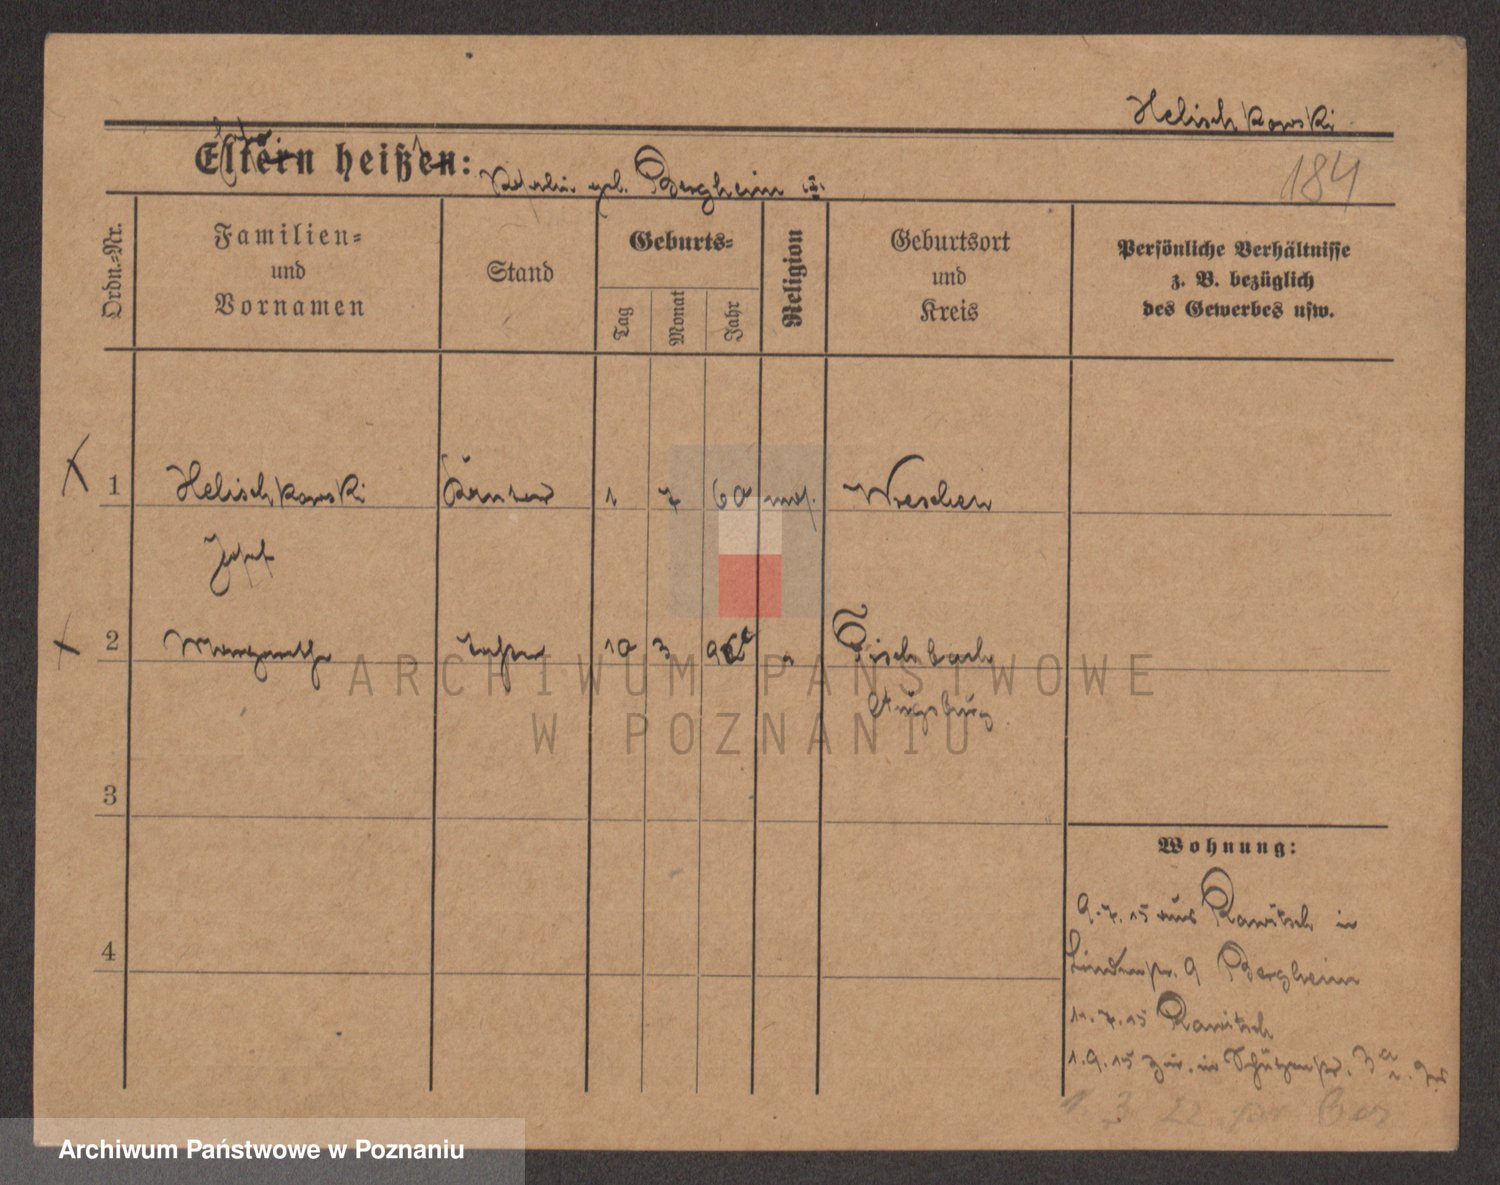 Helischkowski
184
Eltern heißen:
geb. Bergheim
Ordn.=Nr.
Familien=
und
Vornamen
Stand
Geburts=
Tag
Monat
Jahr
Religion
Geburtsort
und
Kreis
Persönliche Verhältnisse
z. B. bezüglich
des Gewerbes usw.
1 Helischkowski 1 7 60 mos. Wreschen
Josef
2 Margarethe Tochter 10 3 Fischbach
Augsburg
ARCHIWUM PAŃSTWOWE
W POZNANIU
3
Wohnung:
9.7.15 aus Rawitsch in
Lindenstr. 9 Bergheim
4
11.7.15 Rawitsch
1.9.15 zur. in Schützenstr. 3a
1. 3 22
Archiwum Państwowe w Poznaniu